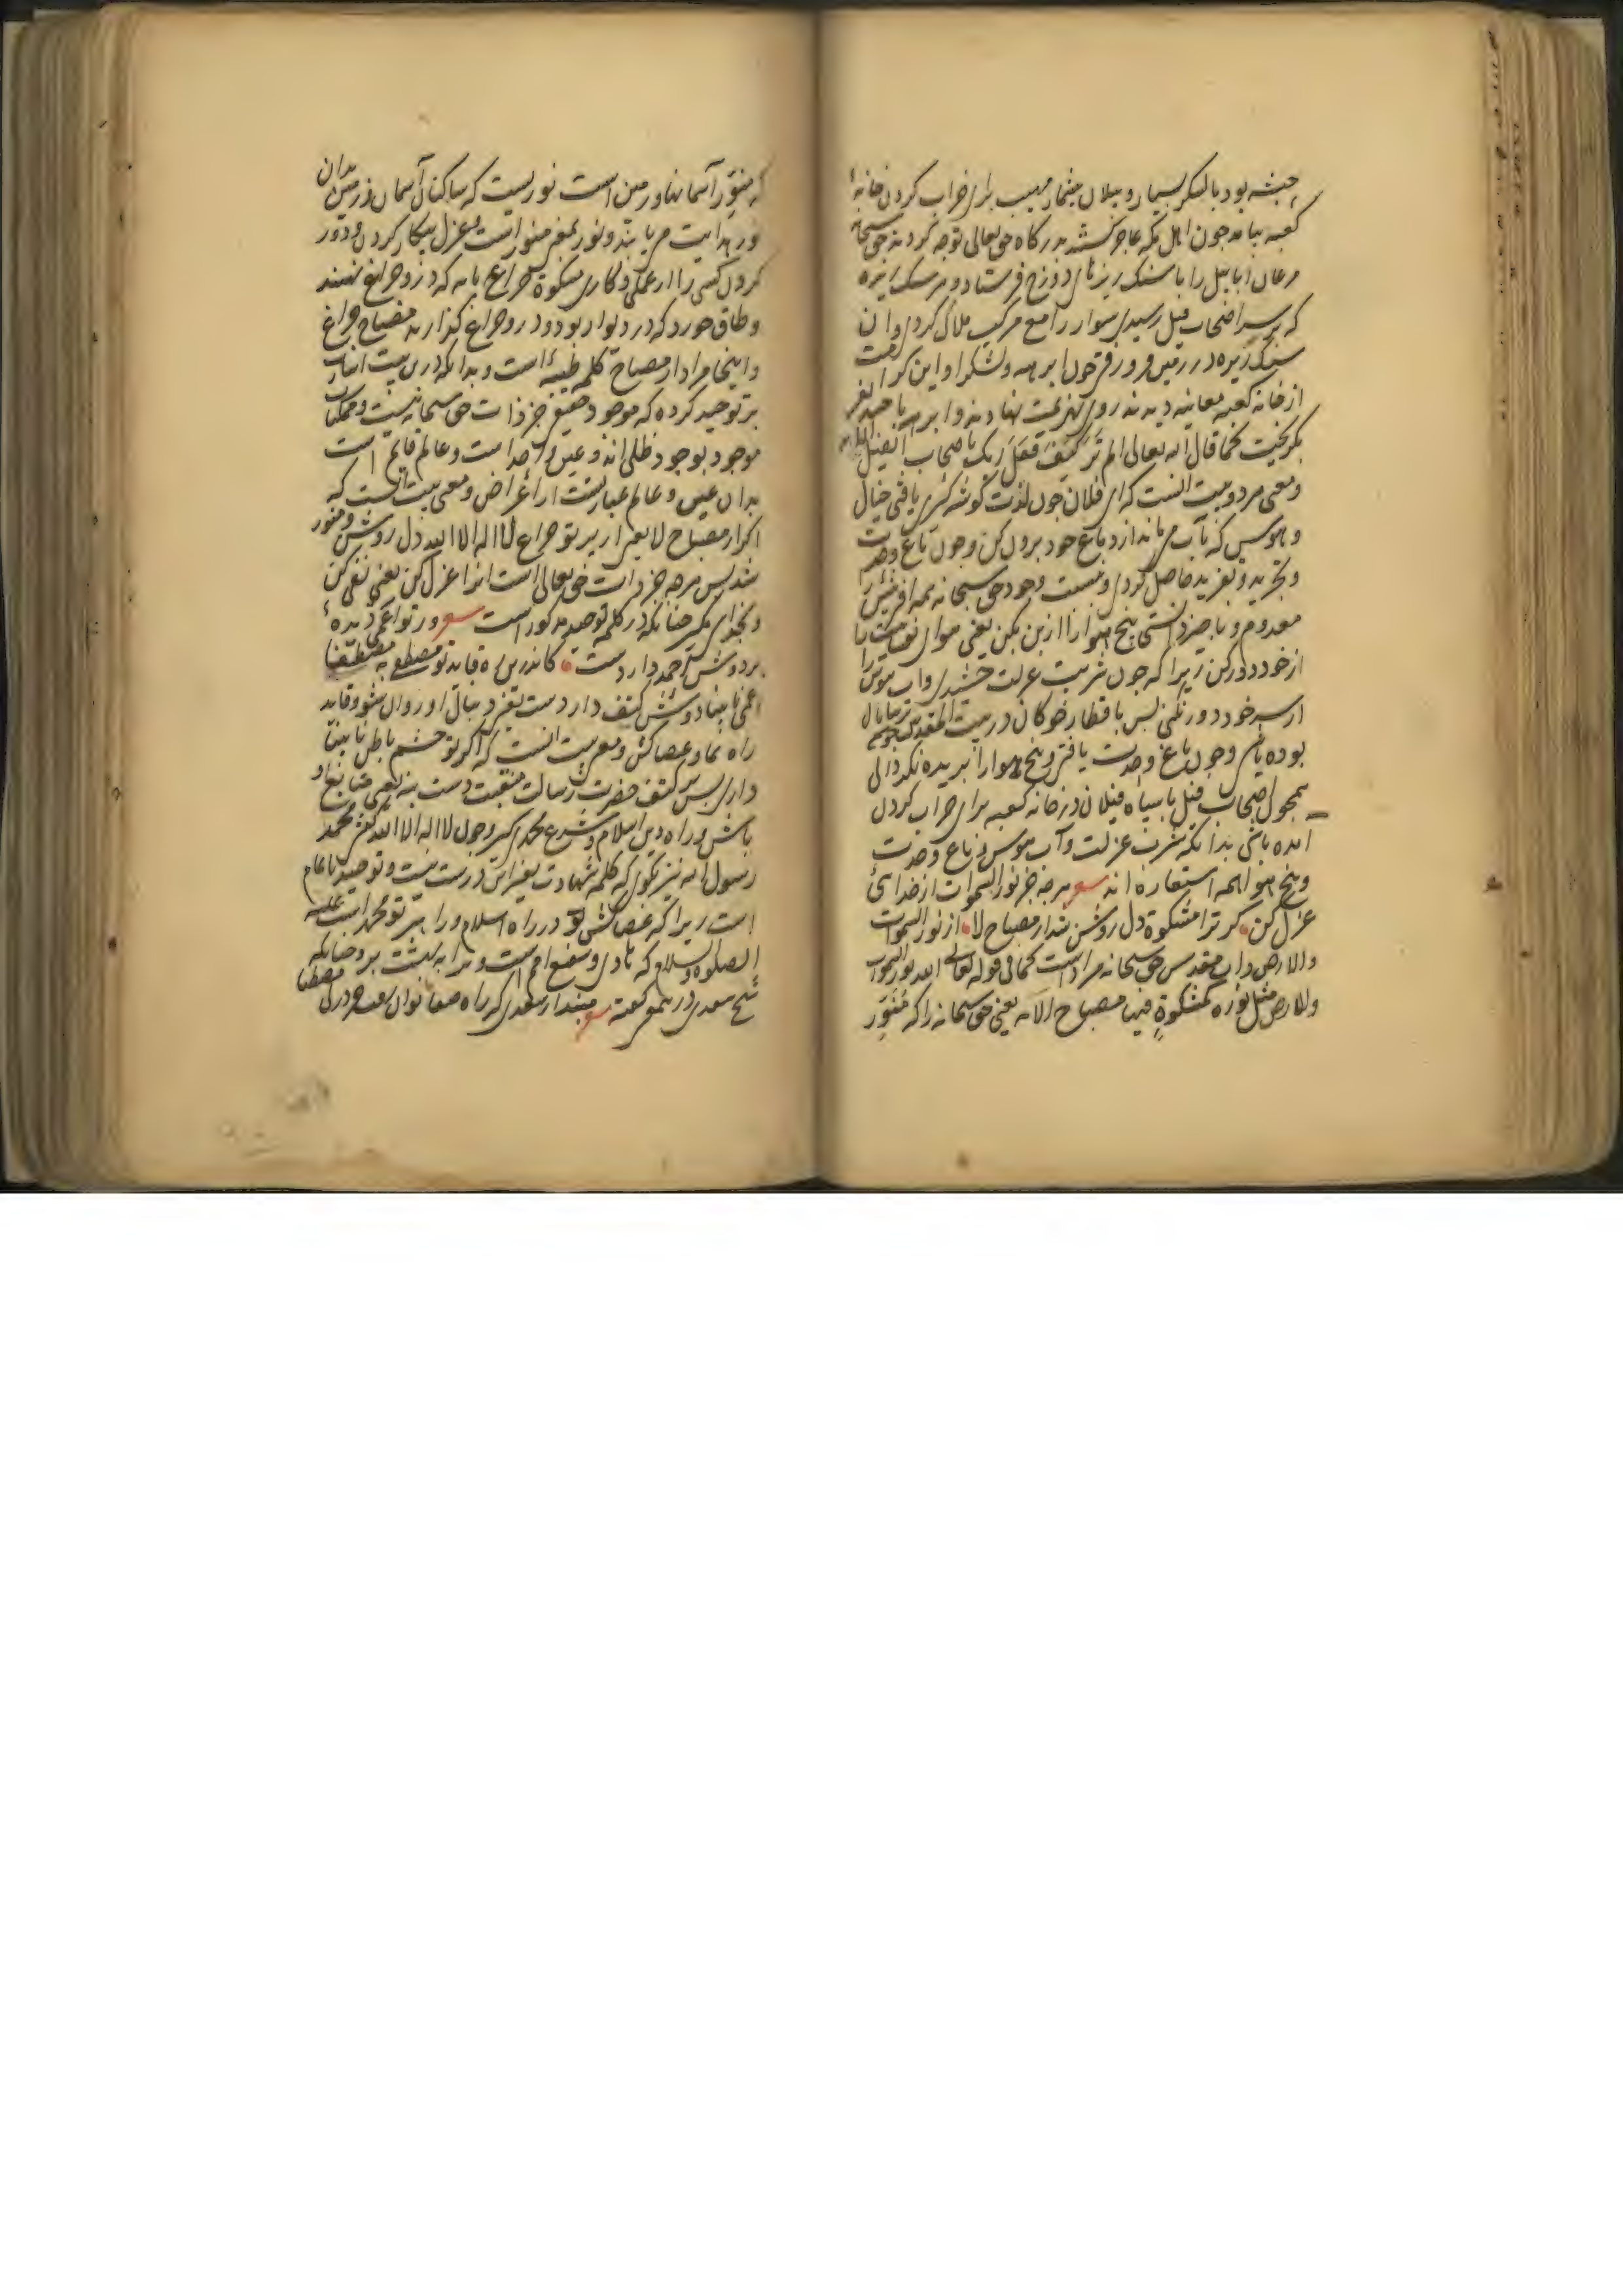 حبشه بود با لشکر بسیار و پیلان بیشمار مهیب برای خراب کردن خانهٔ
کعبه بیامد چون اهل مکه عاجز گشتند بدرگاه حق تعالی توجه کردند حق سبحانه
مرغان ابابیل را با سنک ریزهای دوزخ فرستاد و هر سنک ریزه
که بر سر اصحاب فیل رسیدی سوار را مع مرکب هلاک کردی و آن
سنک ریزه در زمین فرو رفتی چون ابرهه و لشکر او این کرامت
از خانه کعبه معاینه دیدند روی بهزیمت نهادند و ابرهه با چند نفر
بکریخت کما قال الله تعالی الم تر کیف فعل ربک باصحاب الفیل
و معنی هر دو بیت انست که ای فلان چون لذت کوشه کیری یافتی خیال
و هوس که بآب می ماند از دماغ خود برون کن و چون باغ وحدت
و تجرید و تفرید حاصل کردی و هست وجود حق سبحانه همه افرینش را
معدوم و ناچیز دانستی بیخ هوا را از بن بکن یعنی هوای نفسانیت را
از خود دور کن زیرا که چون شربت عزلت چشیدی و آب هوس را
از سر خود دور نکنی پس با قطار خوکان در بیت المقدس
بوده باشی و چون باغ وحدت یافتی و بیخ هوا را نبریده نکردانی
همچون اصحاب فیل با سپاه فیلان در خانه کعبه برای خراب کردن
امده باشی بدانکه شربت عزلت و آب هوس و باغ وحدت
و بیخ هوا همه استعاره اند هر چه جز نور السموات از خدایی
عزل کن کر ترا مشکوة دل روشن شد از مصباح لا از نور السموات
والارض ذات مقدس حق سبحانه مراد است کما فی قوله تعالی الله نور السموات
والارض مثل نوره کمشکوة فیها مصباح الآیه یعنی حق سبحانه را که منور
که منور آسمانها و زمین است نوریست که ساکنان آسمان و زمین بدان
نور هدایت می یابند و نور بمعنی منور است و عزل بیکار کردن و دور
کردن کسی را از عملی و کاری مشکوة چراغ پایه که در و چراغ نهند
و طاق خورد که در دیوار بود و در و چراغ کذارند مصباح چراغ
و اینجا مراد از مصباح کلمه طیبه است و بدانکه درین بیت اشارت
بر توحید کرده که موجود حقیقی جز ذات حق سبحانه نیست و ممکنات
موجود بوجود ظلی اند و عین واحد است و عالم قایم است
بدان عین و عالم عبارتست از اعراض و معنی بیت انست که
اکر از مصباح لا یعنی از پرتو چراغ لا اله الا الله دل روشن و منور
شد پس هر چه جز ذات حق تعالی است انرا عزل کن یعنی نفی کن
و بخدای مکیر چنانکه در کلمه توحید مذکور است ور تو اعمی دیدهٔ
بر دوش احمد دار دست کاندرین ره قاید تو مصطفی به مصطفا
اعمی نابینا دوش کتف دار دست یعنی دنبال او روان شو و قاید
راه نما و عصا کش و معنی بیت انست که اکر تو چشم باطن نابینا
داری پس بر کتف حضرت رسالت منقبت دست بنه یعنی متابع او
باش و راه دین اسلام و شرع محمدی کیر و چون لا اله الا الله کفتی محمد
رسول الله نیز بکوی که کلمه شهادت بغیر این درست نیست و توحید ناتمام
است زیرا که عصا کش تو در راه اسلام و راهبر تو محمد است علیه
الصلوة والسلام که هادی و شفیع امم است و ترا به بهشت برد چنانکه
شیخ سعدی درین معنی کفته مپندار سعدی که راه صفا توان رفت جز در پی مصطفا